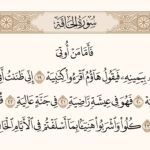 سورة الحاقة
فَأَمَّا مَنْ أُوتِىَ
بِيَمِينِهِۦ فَيَقُولُ هَآؤُمُ ٱقْرَءُوا۟ كِتَٰبِيَهْ ١٩ إِنِّى ظَنَنتُ
فَهُوَ فِى عِيشَةٍ رَّاضِيَةٍ ٢١ فِى جَنَّةٍ عَالِيَةٍ
كُلُوا۟ وَٱشْرَبُوا۟ هَنِيٓـًٔۢا بِمَآ أَسْلَفْتُمْ فِى ٱلْأَيَّامِ